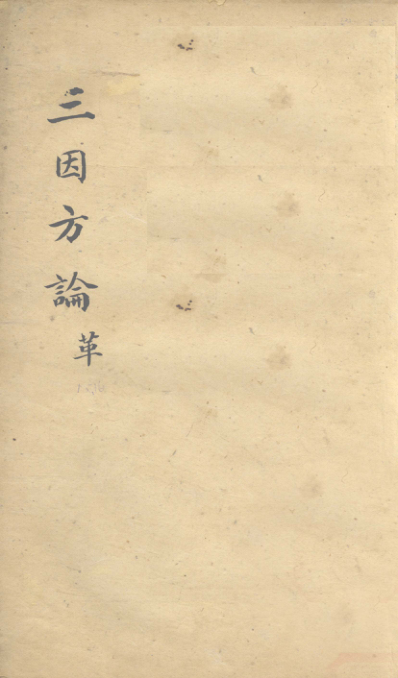 三因方論
革